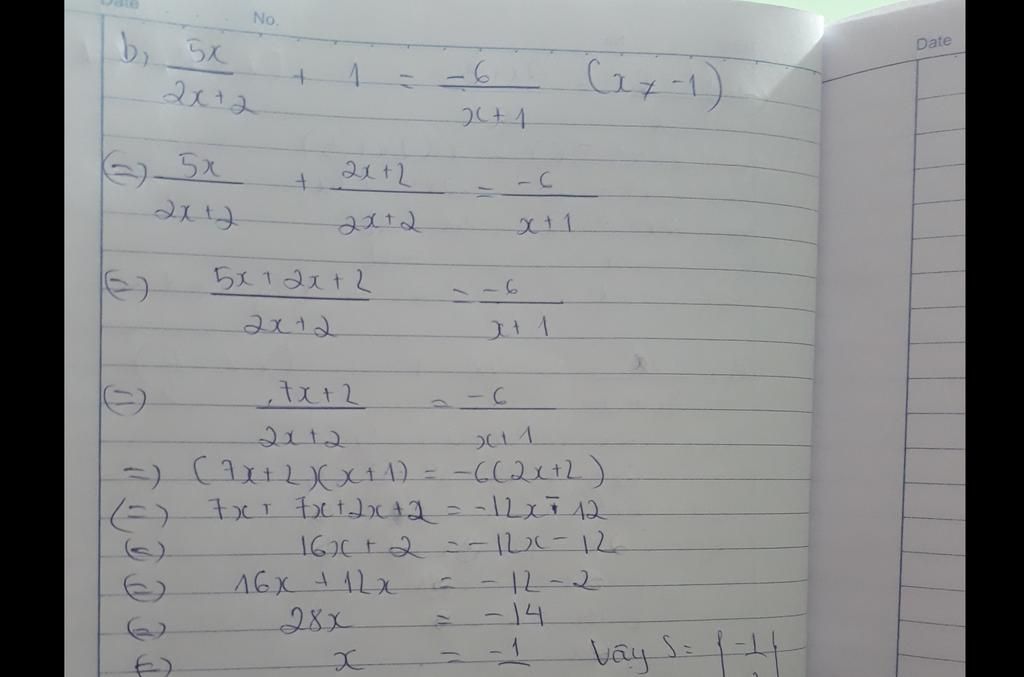 Date No.
Date
b, 5x/2x+2 + 1 = -6/x+1 (x ≠ -1)
(=) 5x/2x+2 + 2x+2/2x+2 = -6/x+1
(=) 5x+2x+2/2x+2 = -6/x+1
(=) 7x+2/2x+2 = -6/x+1
=) (7x+2)(x+1) = -6(2x+2)
(=) 7x + 7x+2x+2 = -12x - 12
(=) 16x + 2 = -12x - 12
(=) 16x + 12x = -12 - 2
(=) 28x = -14
(=) x = -1 Vậy S = { -1 }